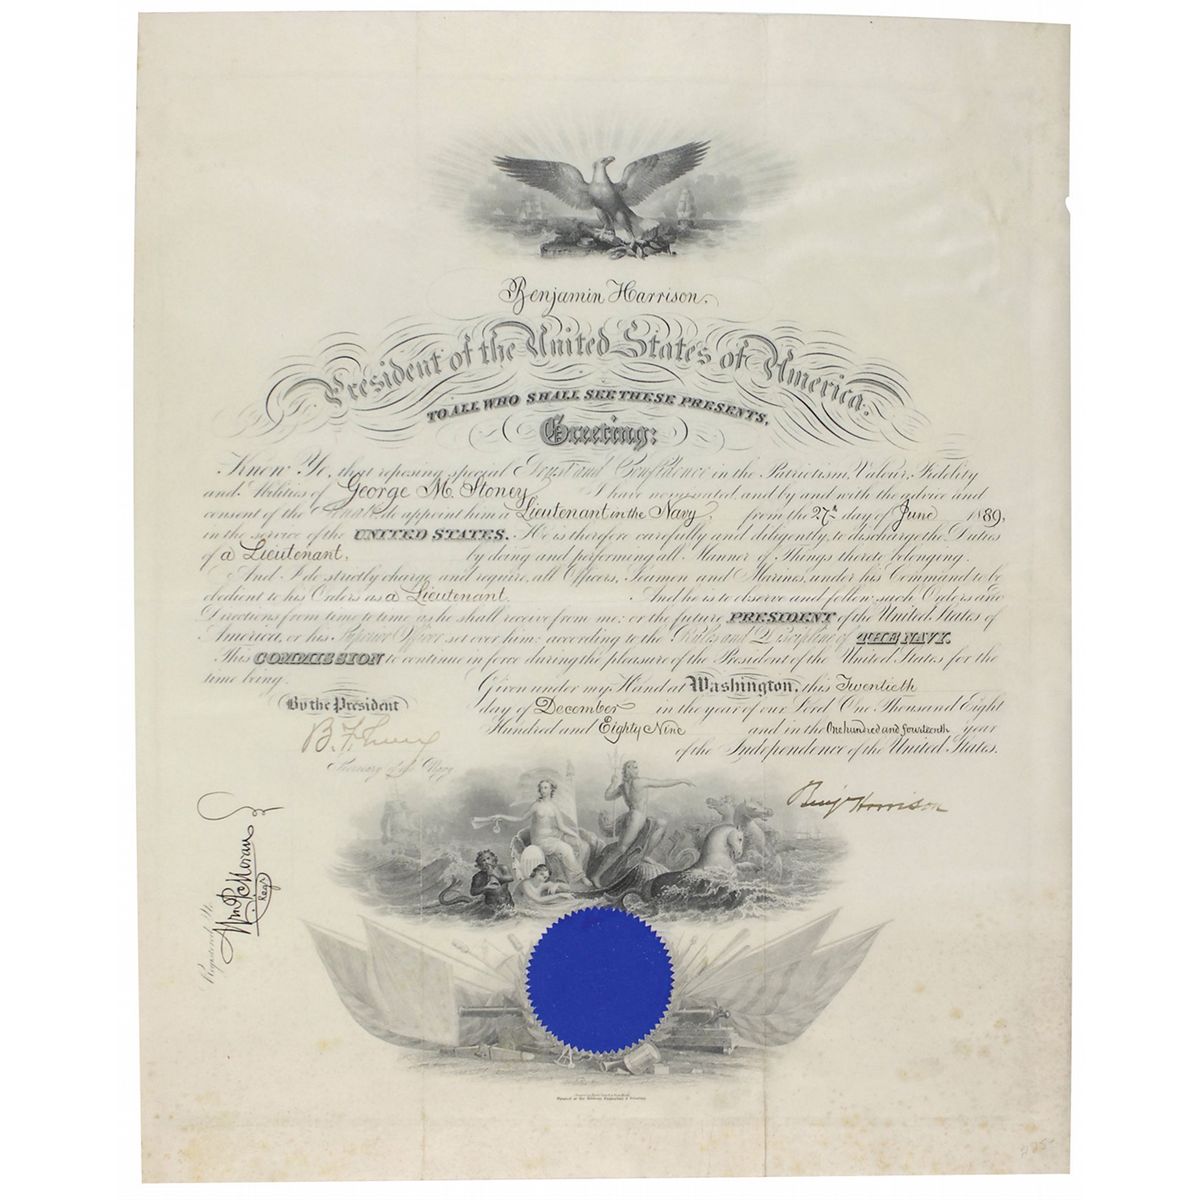 Benjamin Harrison.
President of the United States of America.
TO ALL WHO SHALL SEE THESE PRESENTS,
Greeting:
Know Ye, that reposing special Trust and Confidence in the Patriotism, Valour, Fidelity
and Abilities of George M. Stoney I have nominated and by and with the advice and
consent of the Senate do appoint him a Lieutenant in the Navy from the 27th day of June 1889,
in the service of the UNITED STATES. He is therefore carefully and diligently to discharge the Duties
of a Lieutenant. by doing and performing all Manner of Things thereto belonging.
And I do strictly charge and require all Officers, Seamen and Marines, under his Command to be
obedient to his Orders as a Lieutenant. And he is to observe and follow such Orders and
Directions from time to time as he shall receive from me, or the future PRESIDENT of the United States of
America, or his Superior Officer set over him, according to the Rules and Discipline of THE NAVY.
This COMMISSION to continue in force during the pleasure of the President of the United States for the
time being.
Given under my Hand at Washington, this Twentieth
day of December in the year of our Lord One Thousand Eight
Hundred and Eighty Nine and in the One hundred and fourteenth year
of the Independence of the United States.
By the President
B. F. Tracy
Secretary of the Navy
Benj Harrison
Registered
Wm P Moran
Regr